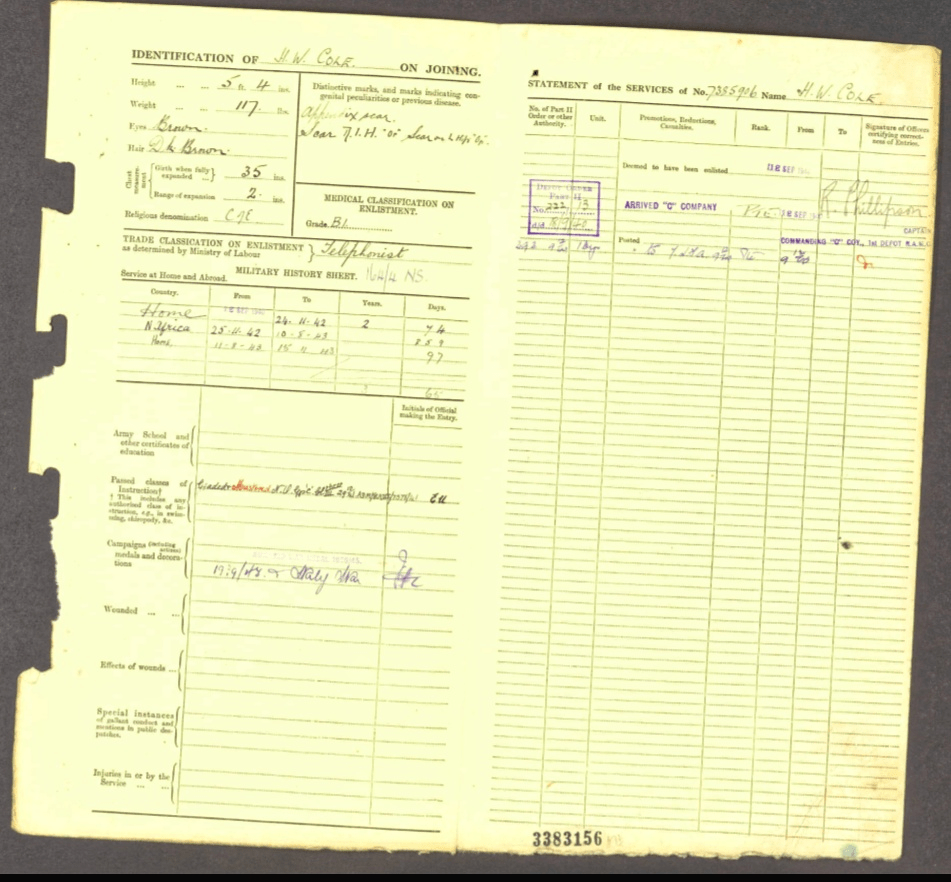 IDENTIFICATION OF H.W. COLE. ON JOINING.
Height ... ... 5 ft. 4 ins.
Weight ... ... 117 lbs.
Eyes Brown.
Hair Dk Brown.
Chest measurement
Girth when fully expanded ... 35 ins.
Range of expansion 2. ins.
Religious denomination C of E
Distinctive marks, and marks indicating con-
genital peculiarities or previous disease.
Appendix scar.
Scar
MEDICAL CLASSIFICATION ON
ENLISTMENT.
Grade B1.
TRADE CLASSICATION ON ENLISTMENT
as determined by Ministry of Labour
Telephonist
MILITARY HISTORY SHEET.
Service at Home and Abroad.
Country. From To Years. Days.
Home 24.11.42 2 74
N. Africa 25.11.42
Home 97
Initials of Official
making the Entry.
Army School and
other certificates of
education
Passed classes of
Instruction†
† This includes any
authorised class of in-
struction, e.g., in swim-
ming, chiropody, &c.
Campaigns (including actions)
medals and decora-
tions
Wounded ... ...
Effects of wounds ...
Special instances
of gallant conduct and
mentions in public des-
patches.
Injuries in or by the
Service ... ...
STATEMENT of the SERVICES of No. 7395906 Name H.W. COLE
No. of Part II
Order or other
Authority.
Unit.
Promotions, Reductions,
Casualties.
Rank.
From
To
Signature of Officers
certifying correct-
ness of Entries.
Deemed to have been enlisted
DEPOT ORDER
PART II
No. 222/13
ARRIVED "C" COMPANY
R. Phillipson
CAPTAIN
COMMANDING "C" COY., 1st DEPOT R.A.M.C.
Posted
3383156